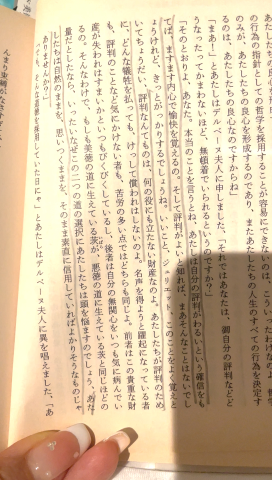 の行為の指針としての哲学を採用することが容易にできないのは
のみが、あたしたちの良心を形成するのであり、またあなたの人生のすべての行為を決定す
るのは、あたしたちの良心なのですからね」
「まあ!」とあたしはデルベーヌ夫人に申しました、「それではあなたは、御自分の評判などど
うなったってかまわないほど、無頓着でいられるというのですか?」
「そのとおりよ、あなた。本当のことを言うとね、あたしは自分の評判がわるいという確信をも
てば、ますます内心で愉快を覚えるの。そして評判がよいと知れば、まあそんなことはないでし
ょうけれど、きっとがっかりするでしょうね。いいこと、ジュリエット、このことをよく覚えと
いてちょうだい、評判なんてものは、何の役にも立たない財産なのよ。あたしたちが評判のため
に、どんな犠牲を払っても、けっして償われはしないのよ。名声を得ようと躍起になっている者
も、評判のことなど気にかけない者も、苦労の多い点ではどちらも同じよ。前者はこの貴重な財
産が失われはすまいかといつもびくびくしているし、後者は自分の無関心をいつも気に病んでい
るの。そんなわけで、もしも美徳の道に生えている茨が、悪徳の道に生えている茨と同じほどの
量だとしたなら、いったいなぜこの二つの道の選択にあたしたちは頭を悩ますのでしょう、あた
したちは自然のままを、思いつくままを、そのまま素直に信用していればよかりそうなものじゃ
ありませんか?」
「でも、そんな道徳を採用していた日にゃ」とあたしはデルベーヌ夫人に異を唱えました、「あ